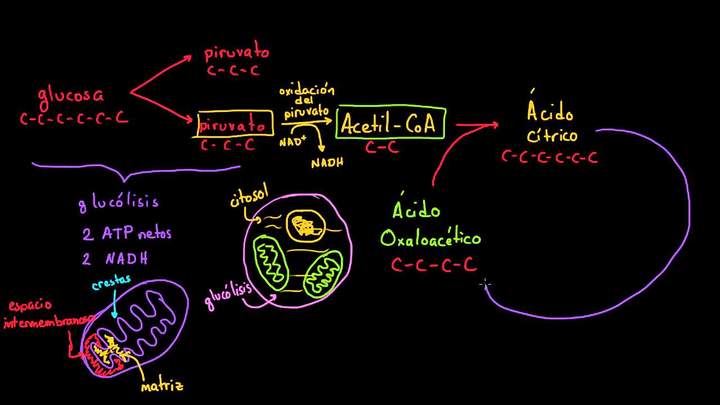 piruvato
C-C-C
glucosa
C-C-C-C-C-C
piruvato
C-C-C
oxidación
del
piruvato
NAD+
NADH
Acetil-CoA
C-C
Ácido
cítrico
C-C-C-C-C-C
Ácido
Oxaloacético
C-C-C-C
glucólisis
2 ATP netos
2 NADH
citosol
glucólisis
crestas
espacio
intermembranoso
matriz